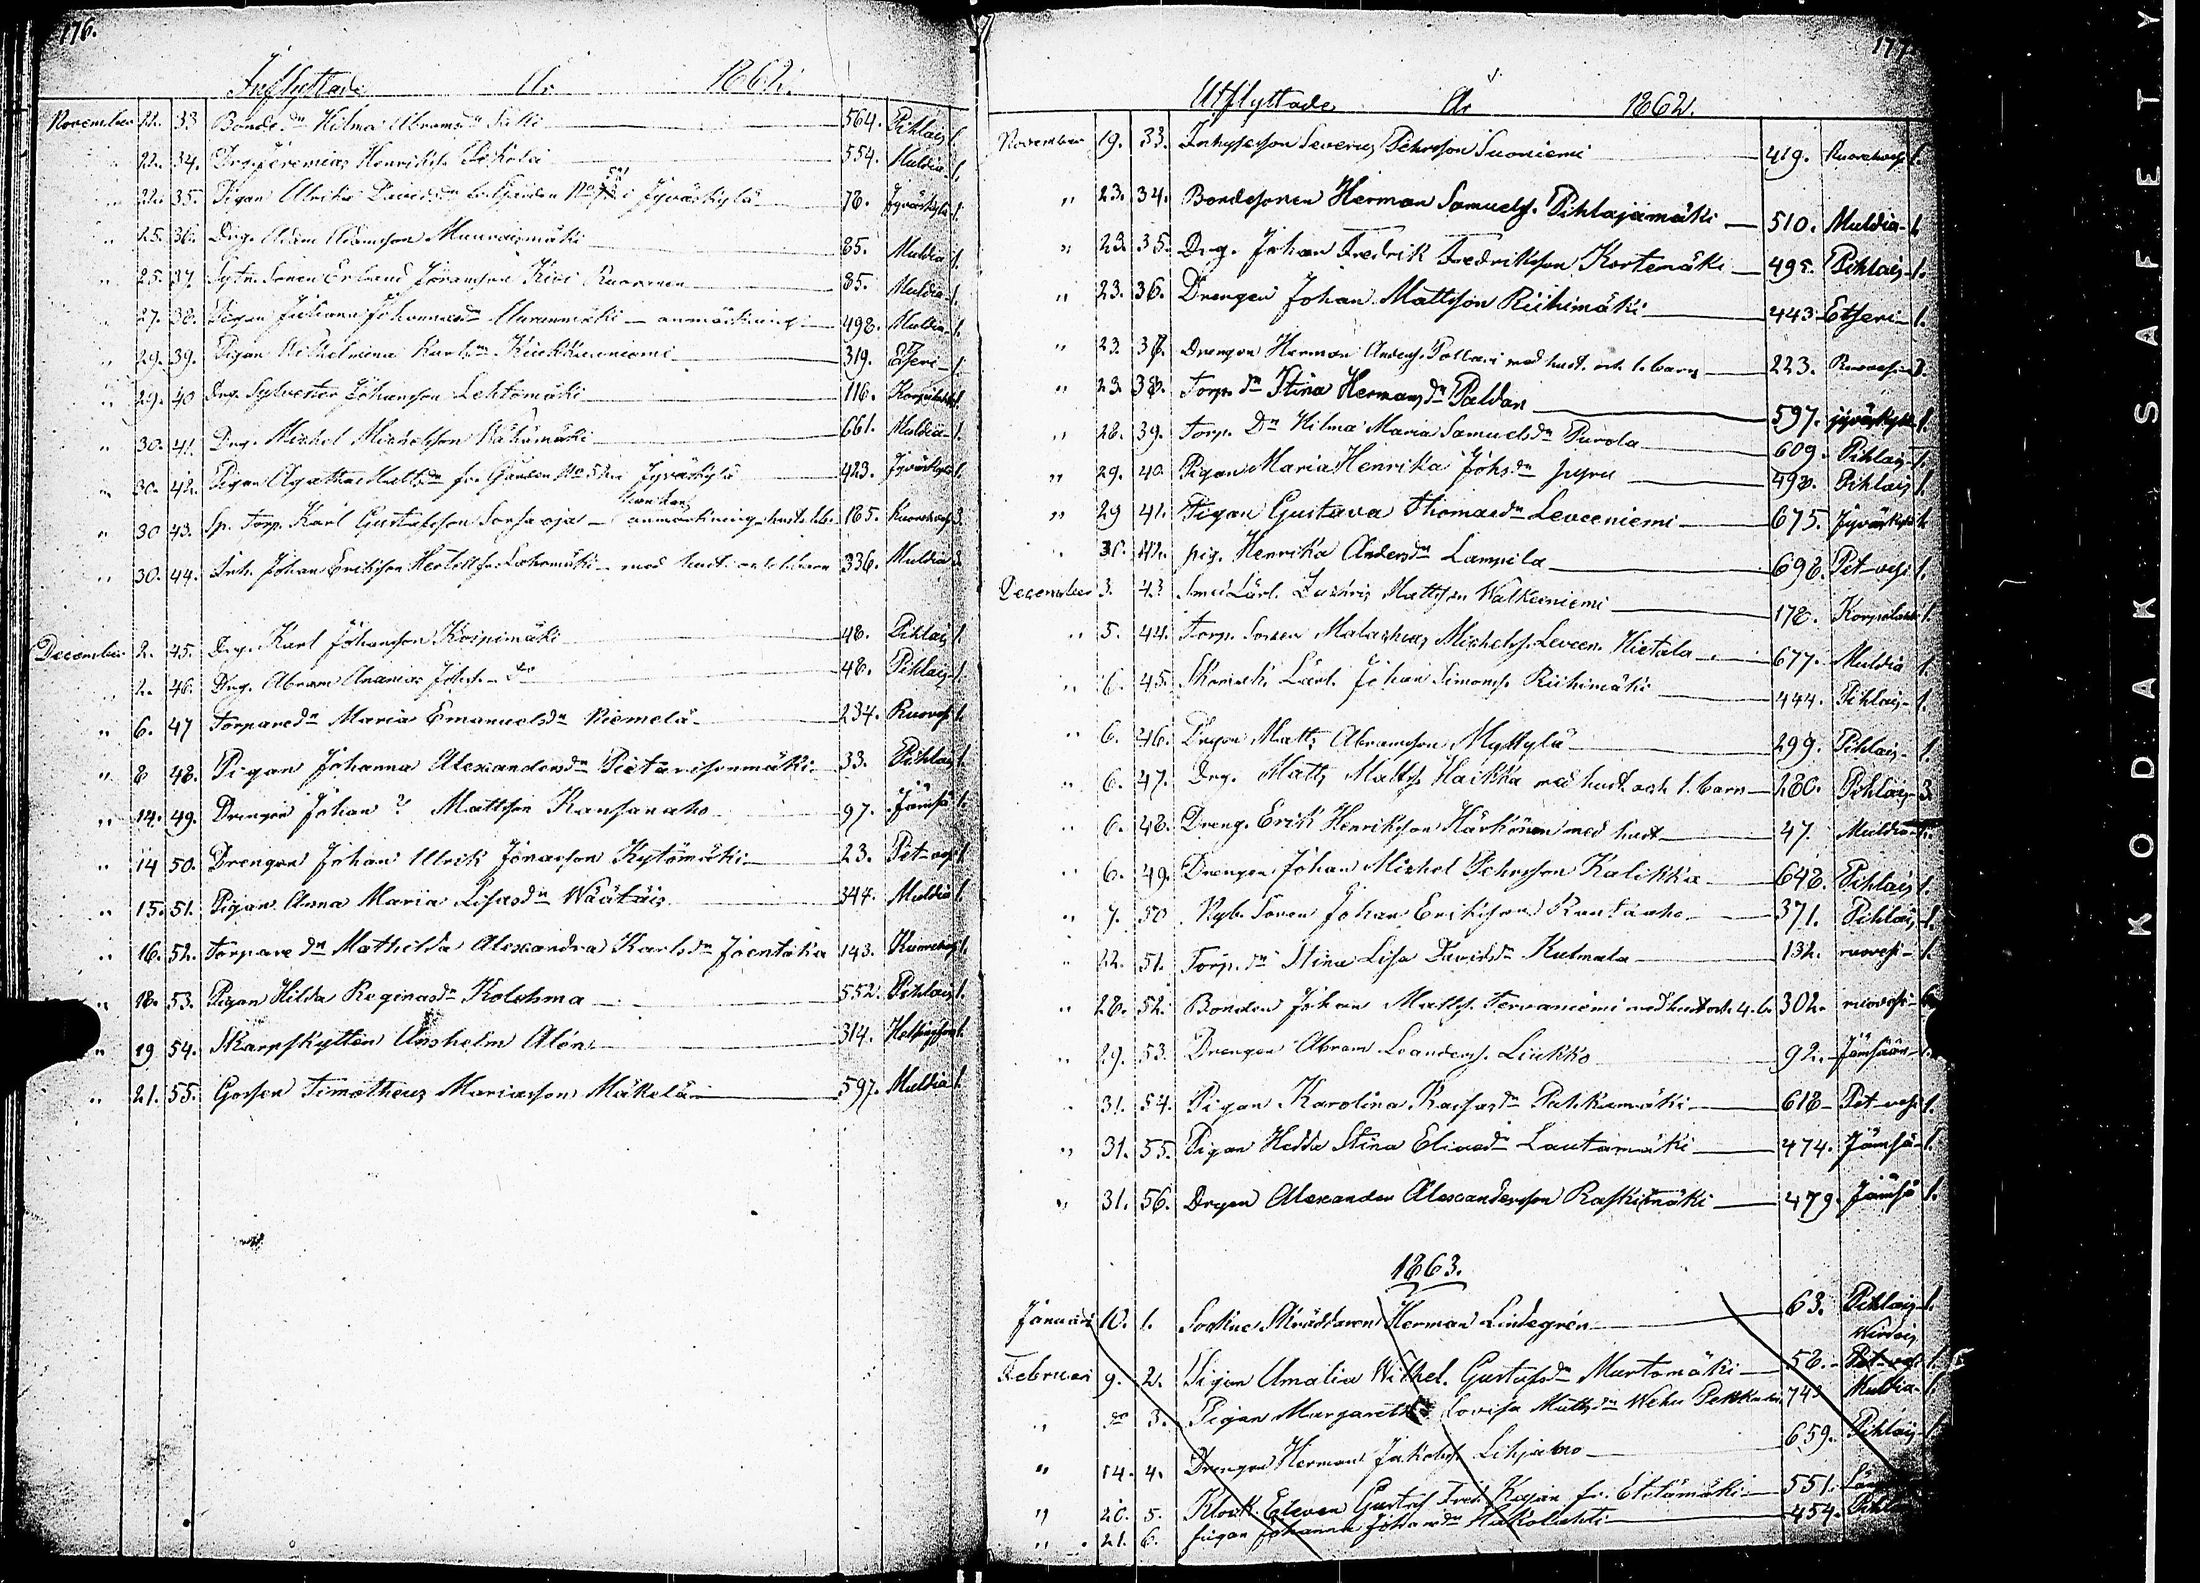 176.
Inflyttade År 1862.
November 22. 33 Bonde dn Hilma Abramsdn 564. Pihlais 1.
" 22. 34. Drg. Jeremias Henrikss. 554. Muldia 1.
" 22. 35. Pigan Ulrika Davidsdn i Jyväskylä 78. Jyväskylä 1.
" 25. 36. Drg. Adam Adamsson 85. Muldia 1.
" 25. 37 Sonen Erland Göransson Kivi 85. Muldia 1.
" 27. 38. Pigan Juliana Johannesdn anmärkning 498. Muldia 1.
" 29. 39. Pigan Wilhelmina Karlsdn Kiukkuuniemi 319. Etseri 1.
" 29. 40 Drg. Sylvester Johansson Lehtomäki 116. 1.
" 30. 41. Drg. Mickel Mickelsson 661. Muldia 1.
" 30. 42. Pigan Agatha Mattsdn fr. Gården No 52 i Jyväskylä 423. Jyväskylä 1.
" 30 43. Sp. Torp. Karl Gustafsson anmärkning 185. 3.
" 30. 44. Inh. Johan Eriksson med hust. 336. Muldia 3
December 2. 45. Drg. Karl Johansson Koipimäki 48. Pihlais 1.
" 2. 46. Drg. Abram Ananias Johss. do 48. Pihlais 1.
" 6. 47 Torparedn Maria Emanuelsdn Niemelä 234. Ruoves 1.
" 8 48. Pigan Johanna Alexandersdn Pietarisonmäki 33. Pihlais 1.
" 14. 49. Drengen Johan ? Mattsson Kansanaho 97. Jämsä 1.
" 14 50. Drengen Johan Ulrik Jonasson Kytömäki 23. Pet-ves 1
" 15. 51. Pigan Anna Maria Lisasdn Wäätäis 344. Muldia 1.
" 16. 52. Torpare dn Mathilda Alexandra Karlsdn Joentaka 143. 1.
" 18. 53. Pigan Hilda Reginasdn Kolehma 552. Pihlais 1.
" 19 54. Skarpskytten Anshelm Alén 314. Helsingfors 1.
" 21. 55. Gossen Timotheus Mariasson Mäkelä 597. Muldia 1.
177
Utflyttade År 1862.
November 19. 33. Inhyseson Severus Pehrsson Suoniemi 419. 1.
" 23. 34. Bondesonen Herman Samuelss. Pihlajamäki 510. Muldia 1.
" 23. 35. Drg. Johan Fredrik Fredriksson Kortemäki 495. Pihlais 1.
" 23. 36. Drengen Johan Mattsson Riihimäki 443 Etseri 1.
" 23. 37. Drengen Herman Anderss. Pollari med hust. och 1. barn 223. Ruovesi 3.
" 23. 38. Torp. dn Stina Hermansdn Paldan 597. jyväskylä 1.
" 28. 39. Torp. Dn Hilma Maria Samuelsdn Purola 609. Pihlais 1.
" 29. 40 Pigan Maria Henrika Johsdn 498. Pihlais 1.
" 29 41. Pigan Gustava Thomasdn Leveeniemi 675. Jyväskylä 1.
" 30. 42. pig. Henrika Andersdn Lampila 698. Pet-vesi 1.
December 3. 43 Smed Lärl. Zachris Mattsson Walkeeniemi 178. Korpilaks 1.
" 5. 44. Torp. Sonen Malachias Michelss. Leveen. Hietala 677. Muldia 1.
" 6. 45. Skomak. Lärl. Johan Simonss. Riihimäki 444. Pihlais 1.
" 6. 46. Drgen Matts Abramsson Myllylä 299. Pihlais 1.
" 6. 47. Drg. Matts Mattss. Haikka med hust. och 1. barn 280. Pihlais 3.
" 6. 48. Dreng. Erik Henriksson Härkönen med hust. 47. Muldia
" 6. 49. Drengen Johan Mickel Pehrsson Kalikka 648. Pihlais 1.
" 7. 50 Nyb. Sonen Johan Eriksson Rautaaho 371. Pihlais 1.
" 22. 51. Torp. dn Stina Lisa Davidsdn Kulmala 132. ruovesi 1.
" 28. 52. Bonden Johan Mattss. Tervaniemi med hust och 4. b. 302. ruovesi 6
" 29. 53. Drengen Abram Leanderss. Liukko 92. Jämsään
" 31. 54. Pigan Karolina Kaisasdn 618 Pet-vesi 1.
" 31. 55. Pigan Hedda Stina Eliaedn Lautamäki 474. Jämsä 1.
" 31. 56. Drgen Alexander Alexandersson Raskimäki 479. Jämsä 1.
1863.
Januari 10. 1. Sockne Skräddaren Herman Lindegrén 63. Pihlais 1.
Wirdois
Februari 9. 2. Pigan Amalia Wilhel. Gustafsdn Murtomäki 58. Pet-ves 1.
" do 3. Pigan Margaretha Lovisa Mattsdn Wehu Pekkala 743 Muldia 1.
" 14. 4. Drengen Herman Jakobss. 659. Pihlais 1.
" 20. 5. Klock. Eleven Gustaf Fred. Kajan fr. Etelämäki 551.
" 21. 6. pigan Johanna Johansdn Hakolahti 454. Pihl
KODAK SAFETY